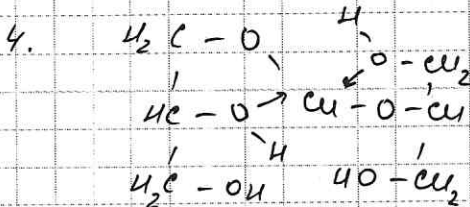 4. H₂C – O H
O – CH₂
HC – O → CH – O – CH
H
H₂C – OH HO – CH₂